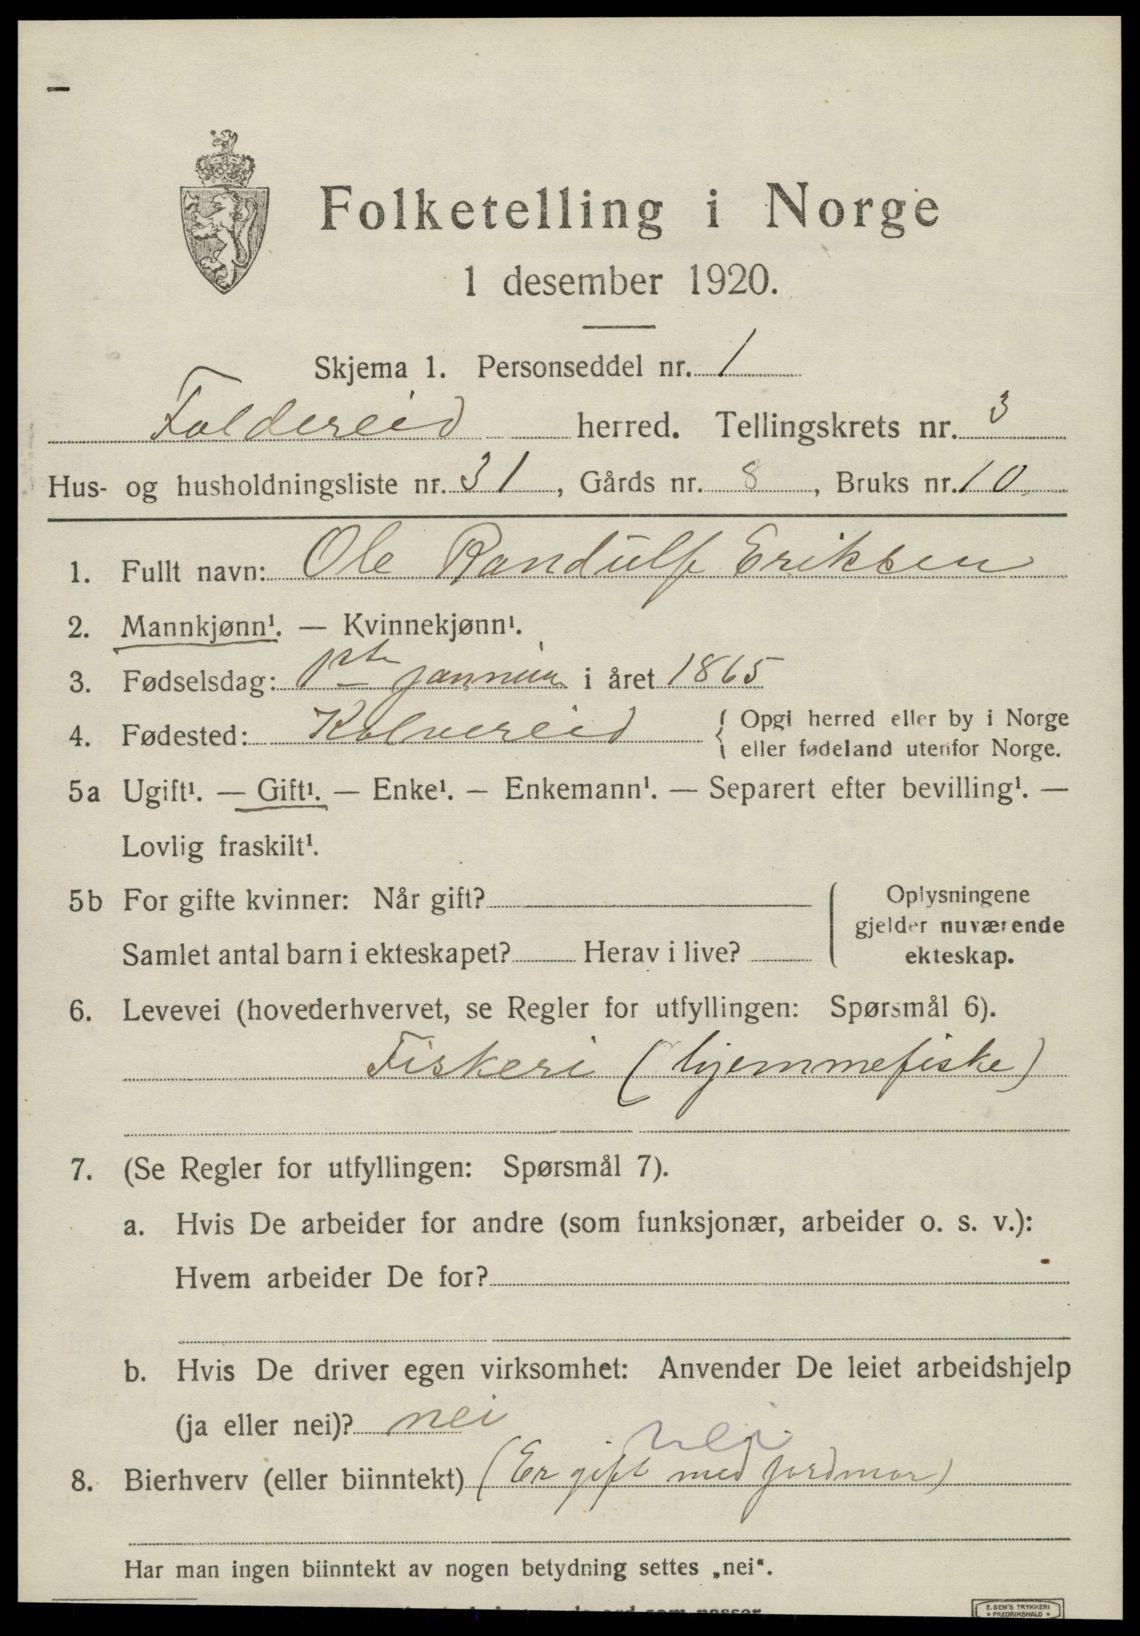 Folketelling i Norge
1 desember 1920.
Skjema 1. Personseddel nr. 1
Foldereid herred. Tellingskrets nr. 3
Hus- og husholdningsliste nr. 31, Gårds nr. 8, Bruks nr. 10
1. Fullt navn: Ole Randulf Eriksen
2. Mannkjønn¹. — Kvinnekjønn¹.
3. Fødselsdag: 1ste januar i året 1865
4. Fødested: Kolvereid { Opgi herred eller by i Norge
eller fødeland utenfor Norge.
5a Ugift¹. — Gift¹. — Enke¹. — Enkemann¹. — Separert efter bevilling¹. —
Lovlig fraskilt¹.
5b For gifte kvinner: Når gift? Oplysningene
gjelder nuværende
Samlet antal barn i ekteskapet? Herav i live? ekteskap.
6. Levevei (hovederhvervet, se Regler for utfyllingen: Spørsmål 6).
Fiskeri (hjemmefiske)
7. (Se Regler for utfyllingen: Spørsmål 7).
a. Hvis De arbeider for andre (som funksjonær, arbeider o. s. v.):
Hvem arbeider De for?
b. Hvis De driver egen virksomhet: Anvender De leiet arbeidshjelp
(ja eller nei)? nei
nei
8. Bierhverv (eller biinntekt) (Er gift med jordmor)
Har man ingen biinntekt av nogen betydning settes „nei“.
E. SEM'S TRYKKERI
FREDRIKSHALD